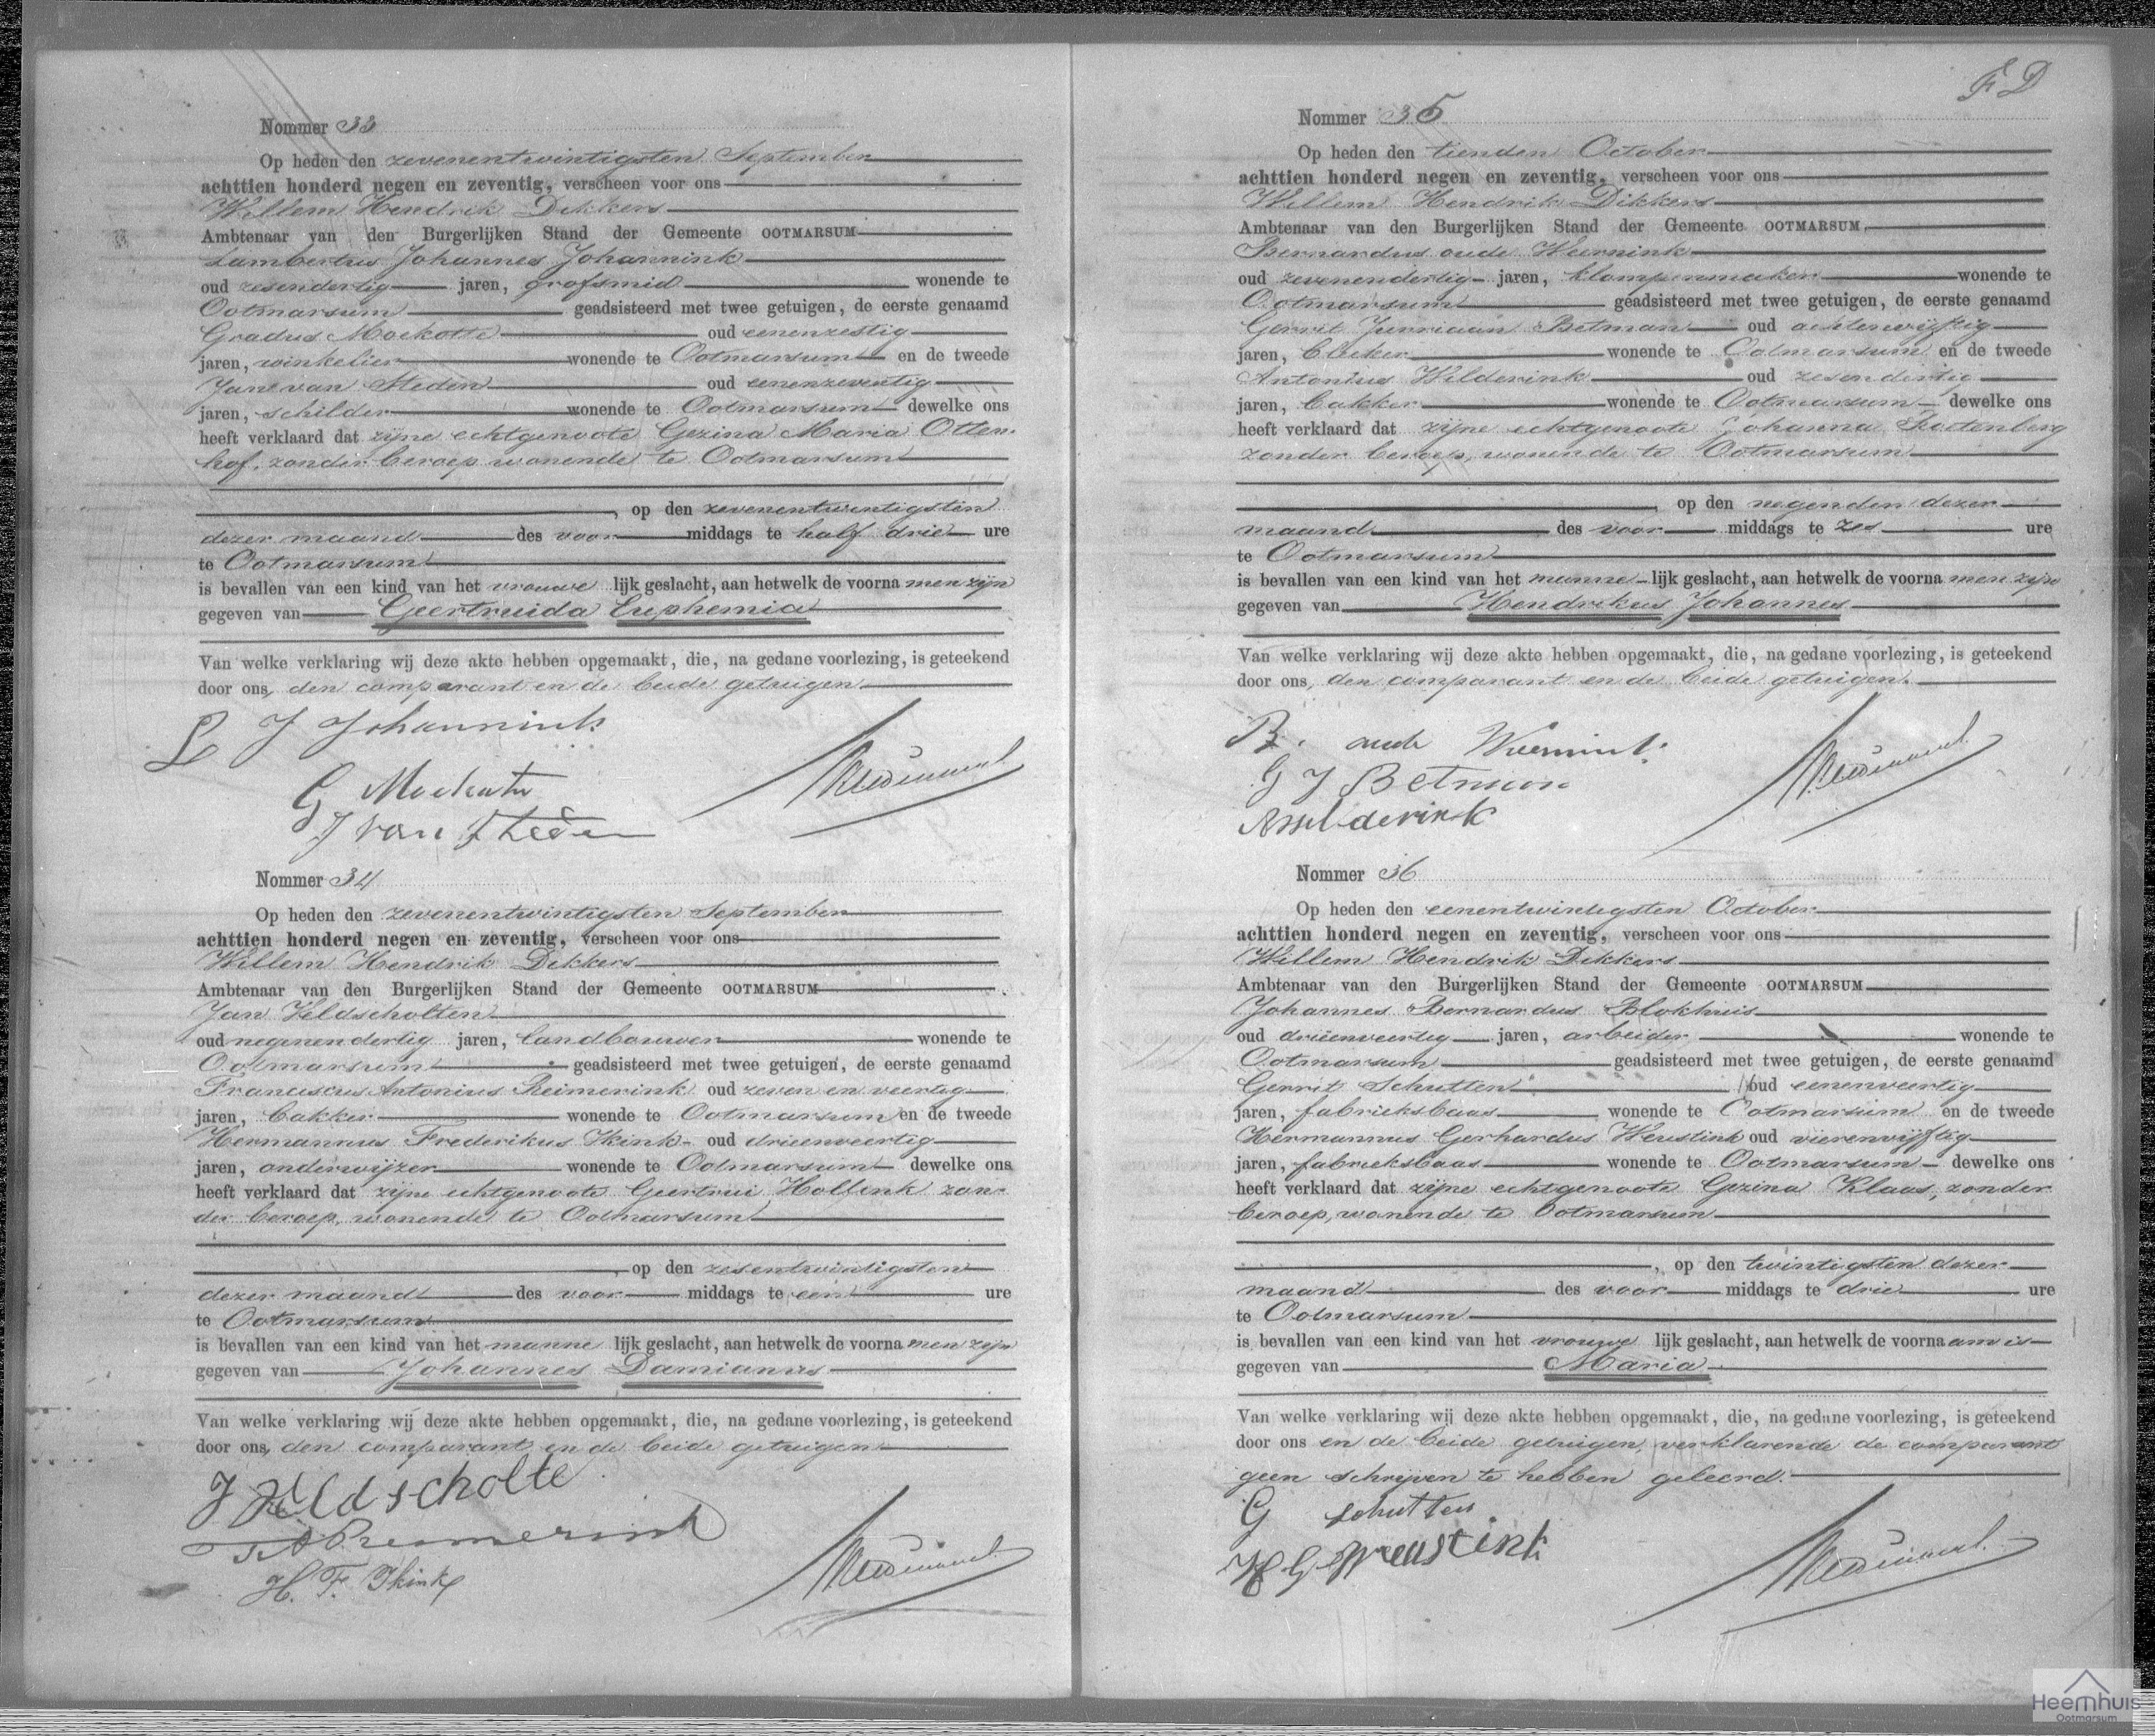 Nommer 33
Op heden den zevenentwintigsten September
achttien honderd negen en zeventig, verscheen voor ons
Willem Hendrik Dikkers
Ambtenaar van den Burgerlijken Stand der Gemeente OOTMARSUM
Lambertus Johannes Johannink
oud zesendertig jaren, grofsmid wonende te
Ootmarsum geadsisteerd met twee getuigen, de eerste genaamd
Gradus Moekotte oud eenenzestig
jaren, winkelier wonende te Ootmarsum en de tweede
Jan van Steden oud eenenzeventig
jaren, schilder wonende te Ootmarsum dewelke ons
heeft verklaard dat zijne echtgenoote Gezina Maria Otten-
hof, zonder beroep wonende te Ootmarsum
, op den zevenentwintigsten
dezer maand des voor middags te half drie ure
te Ootmarsum
is bevallen van een kind van het vrouwe lijk geslacht, aan hetwelk de voorna men zijn
gegeven van Geertruida Euphemia
Van welke verklaring wij deze akte hebben opgemaakt, die, na gedane voorlezing, is geteekend
door ons, den comparant en de beide getuigen.
L J Johannink
G Moekotte
J van Steden
Nommer 34
Op heden den zevenentwintigsten September
achttien honderd negen en zeventig, verscheen voor ons
Willem Hendrik Dikkers
Ambtenaar van den Burgerlijken Stand der Gemeente OOTMARSUM
Jan Veldscholten
oud negenendertig jaren, landbouwer wonende te
Ootmarsum geadsisteerd met twee getuigen, de eerste genaamd
Franciscus Antonius Reimerink oud zeven en veertig
jaren, bakker wonende te Ootmarsum en de tweede
Hermannus Frederikus Ikink oud drieenveertig
jaren, onderwijzer wonende te Ootmarsum dewelke ons
heeft verklaard dat zijne echtgenoote Geertrui Hollink zon-
der beroep, wonende te Ootmarsum
, op den zesentwintigsten
dezer maand des voor middags te een ure
te Ootmarsum
is bevallen van een kind van het manne lijk geslacht, aan hetwelk de voorna men zijn
gegeven van Johannes Damianus
Van welke verklaring wij deze akte hebben opgemaakt, die, na gedane voorlezing, is geteekend
door ons, den comparant en de beide getuigen
J Veldscholte
F A Reimerink
H. F. Ikink
F D
Nommer 35
Op heden den tienden October
achttien honderd negen en zeventig, verscheen voor ons
Willem Hendrik Dikkers
Ambtenaar van den Burgerlijken Stand der Gemeente OOTMARSUM,
Bernardus oude Weernink
oud zevenendertig jaren, klompenmaker wonende te
Ootmarsum geadsisteerd met twee getuigen, de eerste genaamd
Gerrit Jurriaan Betman oud achtenvijftig
jaren, bleker wonende te Ootmarsum en de tweede
Antonius Wilderink oud zesendertig
jaren, bakker wonende te Ootmarsum dewelke ons
heeft verklaard dat zijne echtgenoote Johanna
zonder beroep, wonende te Ootmarsum
, op den negenden dezer
maand des voor middags te zes ure
te Ootmarsum
is bevallen van een kind van het manne lijk geslacht, aan hetwelk de voorna men zijn
gegeven van Hendrikus Johannes
Van welke verklaring wij deze akte hebben opgemaakt, die, na gedane voorlezing, is geteekend
door ons, den comparant en de beide getuigen.
B. oude Weernink
G J Betman
Nommer 36
Op heden den eenentwintigsten October
achttien honderd negen en zeventig, verscheen voor ons
Willem Hendrik Dikkers
Ambtenaar van den Burgerlijken Stand der Gemeente OOTMARSUM
Johannes Bernardus Blokhuis
oud drieenveertig jaren, arbeider wonende te
Ootmarsum geadsisteerd met twee getuigen, de eerste genaamd
Gerrit Schutten oud eenenveertig
jaren, fabrieksbaas wonende te Ootmarsum en de tweede
Hermannus Gerhardus Weustink oud vierenvijftig
jaren, fabrieksbaas wonende te Ootmarsum dewelke ons
heeft verklaard dat zijne echtgenoote Gezina Klaas, zonder
beroep, wonende te Ootmarsum
, op den twintigsten dezer
maand des voor middags te drie ure
te Ootmarsum
is bevallen van een kind van het vrouwe lijk geslacht, aan hetwelk de voorna am is
gegeven van Maria
Van welke verklaring wij deze akte hebben opgemaakt, die, na gedane voorlezing, is geteekend
door ons en de beide getuigen, verklarende de comparant
geen schrijven te hebben geleerd.
G Schutten
H G Weustink
Heemhuis
Ootmarsum